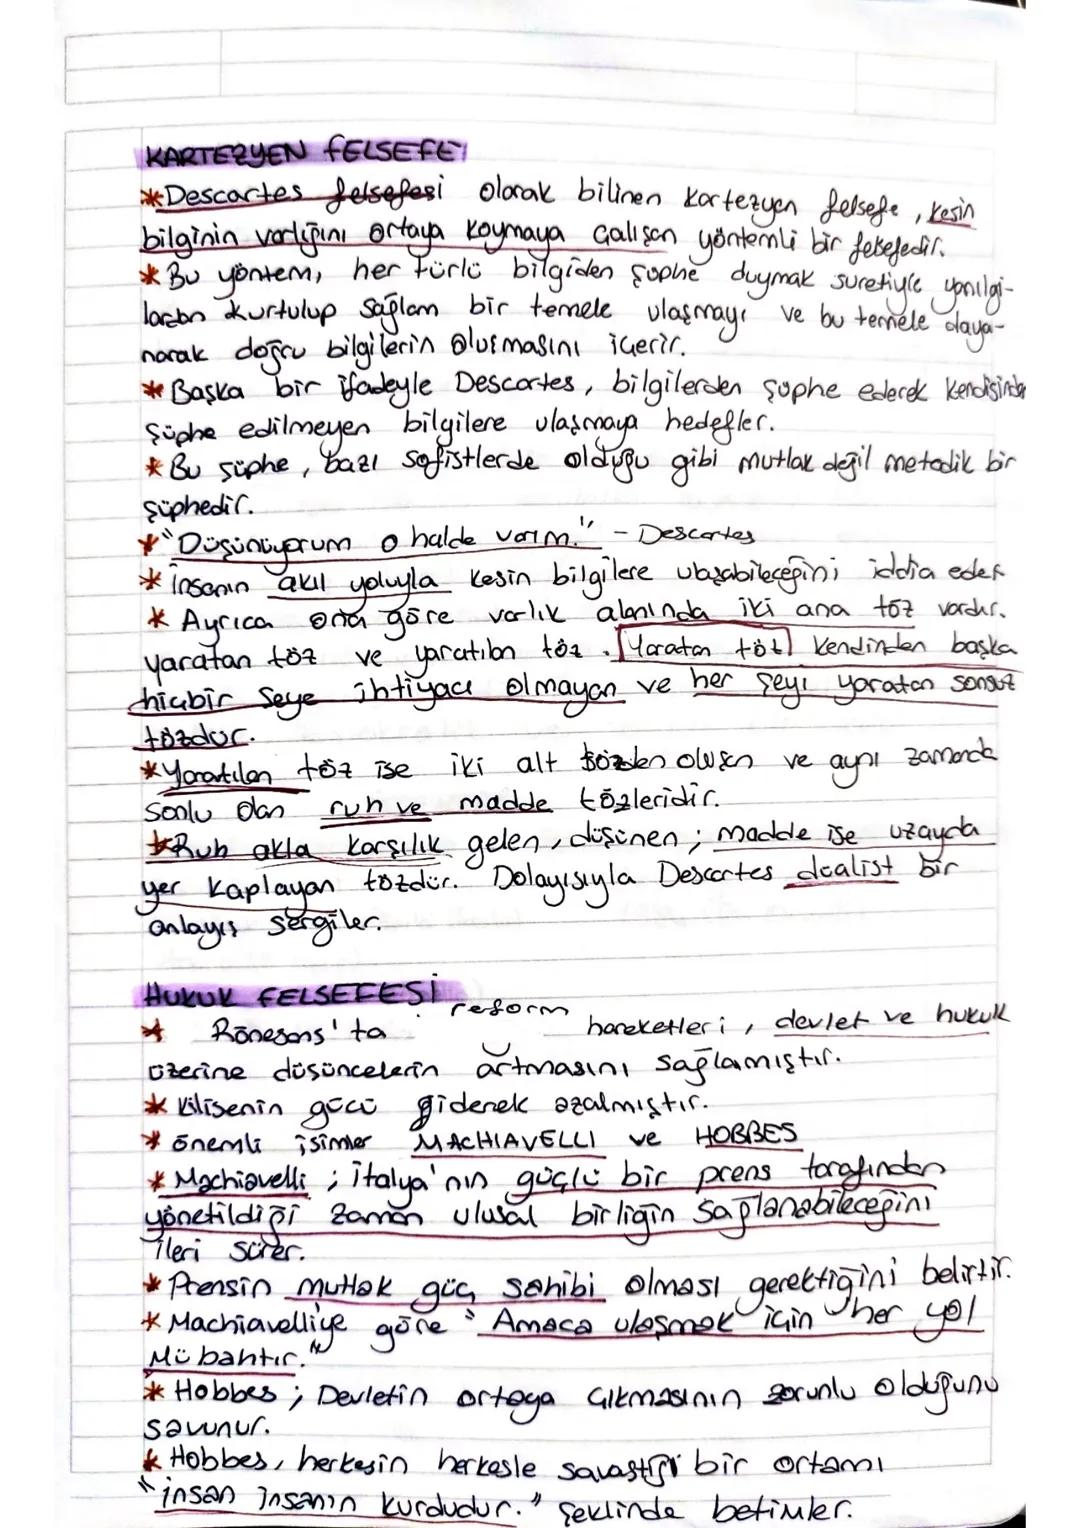 KARTEZYEN FELSEFE
*Descartes felsefesi olarak bilinen Kartezyen felsefe, kesin
bilginin varlığını ortaya koymaya çalışan yöntemli bir felsefedir.
*Bu yöntem, her türlü bilgiden şüphe duymak suretiyle yanılgı-
lardan kurtulup sağlam bir temele ulaşmayı ve bu temele daya-
narak doğru bilgilerin oluşmasını içerir.
*Başka bir ifadeyle Descartes, bilgilerden şüphe ederek kendisinden
şüphe edilmeyen bilgilere ulaşmaya hedefler.
*Bu şüphe, bazı sofistlerde olduğu gibi mutlak değil metodik bir
şüphedir.
*"Düşünüyorum o halde varım." - Descartes
*İnsanın akıl yoluyla kesin bilgilere ulaşabileceğini iddia eder
*Ayrıca ona göre varlık alanında iki ana töz vardır.
yaratan töz ve yaratılan töz. Yaratan töz kendinden başka
hiçbir şeye ihtiyacı olmayan ve her şeyi yaratan sonsuz
tözdür.
*Yaratılan töz ise iki alt tözden oluşan ve aynı zamanda
sonlu olan ruh ve madde tözleridir.
*Ruh akla karşılık gelen, düşünen; madde ise uzayda
yer kaplayan tözdür. Dolayısıyla Descartes dualist bir
anlayış sergiler.
HUKUK FELSEFESİ
* Rönesans'ta reform hareketleri, devlet ve hukuk
üzerine düşüncelerin artmasını sağlamıştır.
*Kilisenin gücü giderek azalmıştır.
*önemli isimler MACHIAVELLI ve HOBBES
*Machiavelli; İtalya'nın güçlü bir prens tarafından
yönetildiği zaman ulusal birliğin sağlanabileceğini
ileri sürer.
*Prensin mutlak güç sahibi olması gerektiğini belirtir.
*Machiavelli'ye göre "Amaca ulaşmak için her yol
Mübahtır."
*Hobbes; Devletin ortaya çıkmasının zorunlu olduğunu
savunur.
*Hobbes, herkesin herkesle savaştığı bir ortamı
"insan insanın kurdudur." şeklinde betimler.